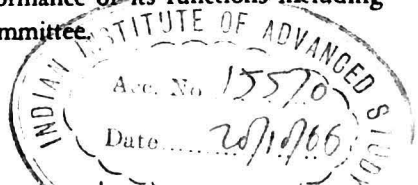 ormance of its functions including
ommittee.
INDIAN INSTITUTE OF ADVANCED STUD
Acc. No 15570
Date...... 20/10/66